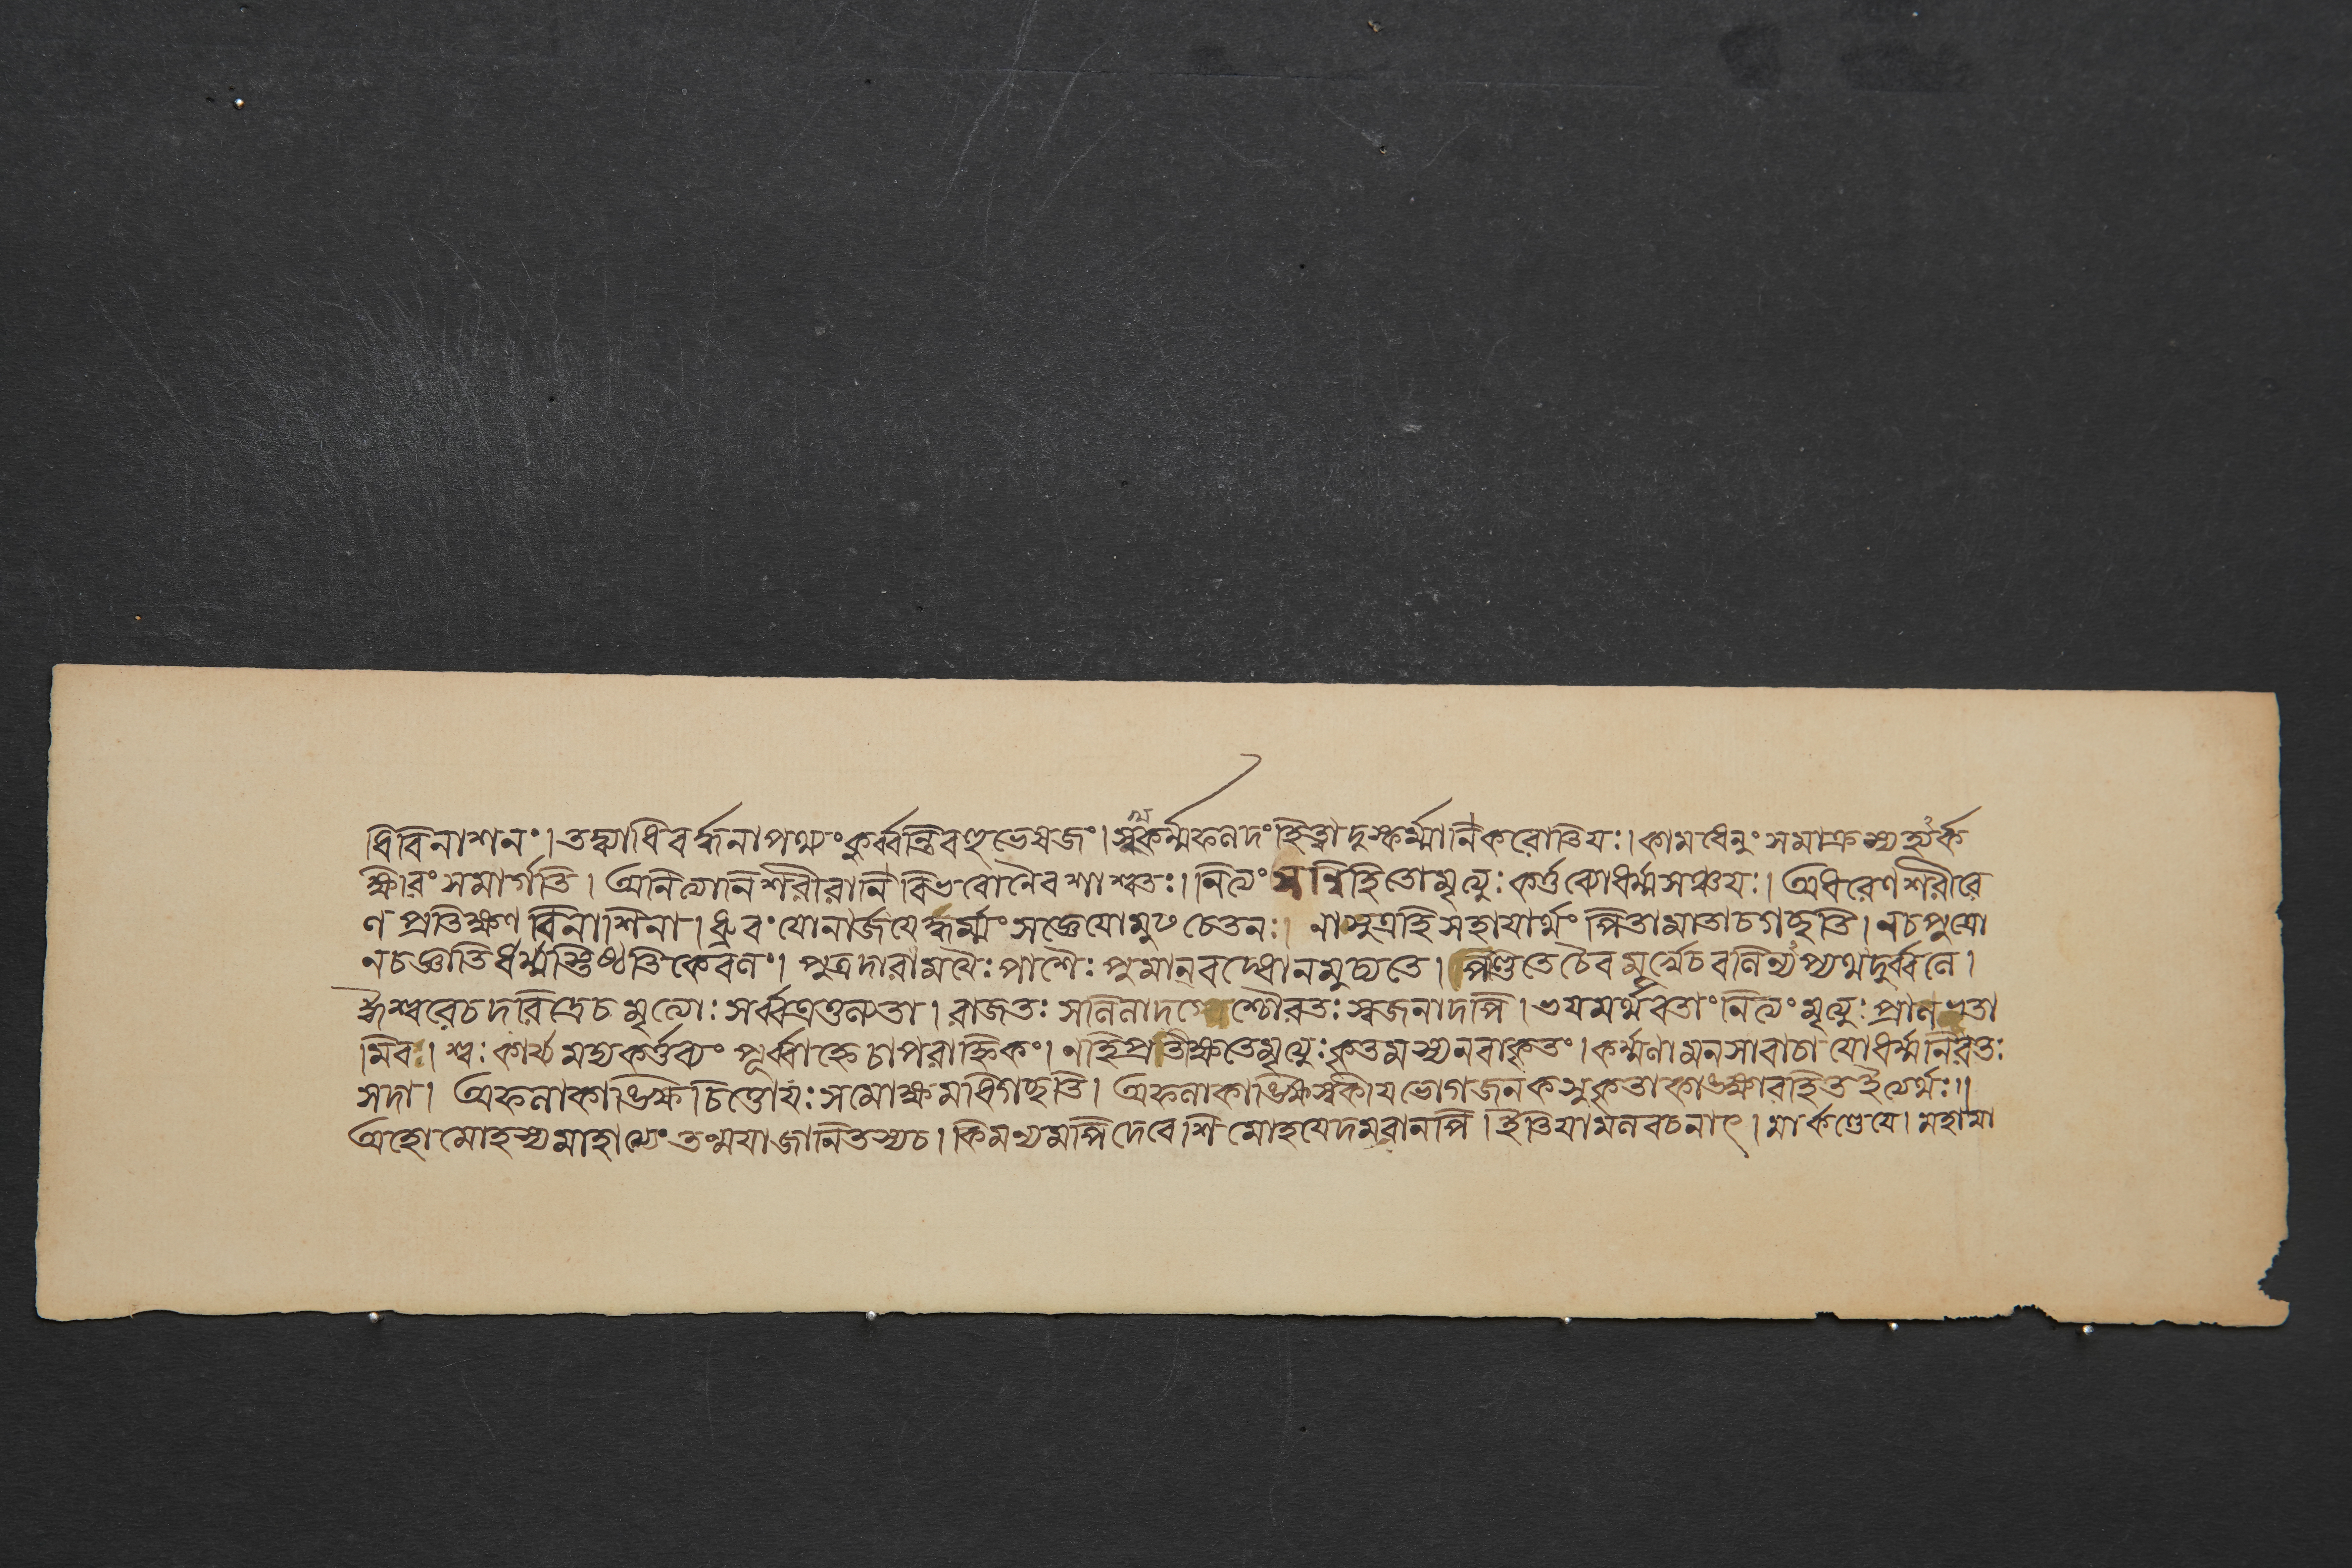 ধিবিনাশনং। তদ্ব্যাধিবর্দ্ধনাপথ্যং কুর্ব্বন্তি বহুভেষজং। সুকর্ম্মফলদং হিত্বা দুষ্কর্ম্মানি করোতি যঃ। কামধেনুং সমাক্রম্য হ্যর্ক
ক্ষীরং সমার্গতি। অনিত্যানি শরীরানি বিভবো নৈব শাশ্বতঃ। নিত্যং সন্নিহিতো মৃত্যুঃ কর্ত্তব্যো ধর্ম্মসঞ্চয়ঃ। অধ্রুবেণ শরীরে
ণ প্রতিক্ষণ বিনাশিনা। ধ্রুবং যো নার্জয়েদ্ধর্ম্মং স জ্ঞেয়ো মুঢচেতনঃ। নামুত্র হি সহায়ার্থং পিতা মাতা চ গছতি। ন চ পুত্রো
ন চ জ্ঞাতি ধর্ম্মস্তিষ্ঠতি কেবলং। পুত্রদারাময়ৈঃ পাশৈঃ পুমান্ বদ্ধো ন মুচ্যতে। পণ্ডিতে চৈব মূর্খে চ বলিন্যপ্যথ দুর্ব্বলে।
ঈশ্বরে চ দরিদ্রে চ মৃত্যোঃ সর্ব্বত্র তুল্যতা। রাজতঃ সলিলাদগ্নেশ্চৌরতঃ স্বজনাদপি। ভয়মর্থবতাং নিত্যং মৃত্যুঃ প্রাণভৃতা
মিব। শ্বঃ কার্য্যমদ্য কর্ত্তব্যং পূর্ব্বাহ্নে চাপরাহ্নিকং। ন হি প্রতীক্ষতে মৃত্যুঃ কৃতমস্য ন বা কৃতং। কর্ম্মণা মনসা বাচা যো ধর্ম্মনিরতঃ
সদা। অফলাকাঙ্ক্ষিচিত্তো যঃ স মোক্ষমধিগছতি। অফলাকাঙ্ক্ষি স্বকীয়ভোগজনক সুকৃতাকাঙ্ক্ষারহিত ইত্যর্থঃ॥
অহো মোহস্য মাহাত্ম্যং তন্ময়াজানিতস্য চ। কিমন্যমপি দেবেশি মোহয়েদমরানপি। ইতি যামল বচনাৎ। মার্কণ্ডেয়ে। মহামা